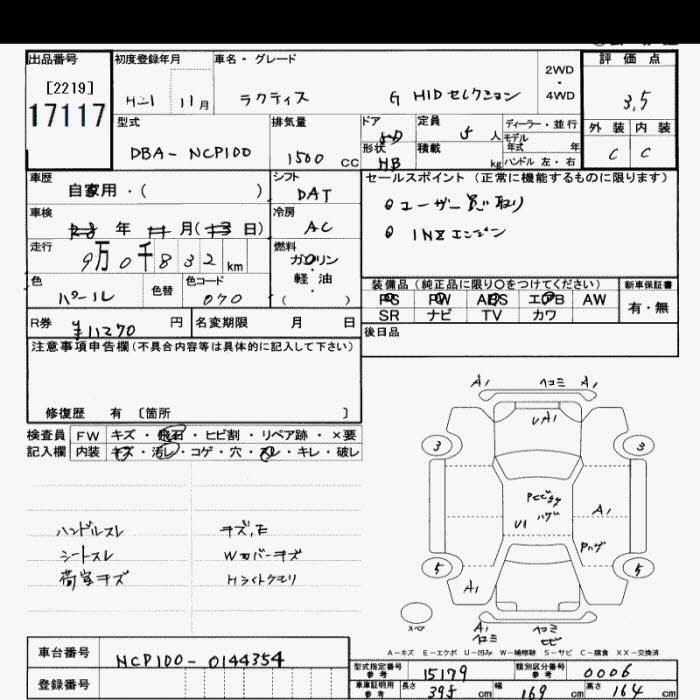 出品番号
[2219]
17117
初度登録年月
H21 11月
車名・グレード
ラクティス G HIDセレクション
2WD
・
4WD
評価点
3.5
外装 内装
C C
型式
DBA-NCP100
排気量
1500 CC
ドア
5D
定員
5 人
ディーラー・並行
形状
HB
積載
kg
モデル年式 年
ハンドル 左・右
車歴
自家用・( )
シフト
DAT
セールスポイント(正常に機能するものに限ります)
ユーザー買い取り
1NZエンジン
車検
年 月( 日)
冷房
AC
走行
9万0千832km
燃料
ガソリン
・
軽油
( )
色
パール
色替
色コード
070
装備品(純正品に限り〇をつけてください)
PS PW ABS エアB AW
SR ナビ TV カワ
新車保証書
有・無
R券
¥11270 円
名変期限 月 日
後日品
注意事項申告欄(不具合内容等は具体的に記入して下さい)
修復歴 有 〔箇所 〕
検査員 FW キズ・飛石・ヒビ割・リペア跡・×要
記入欄 内装 キズ・汚レ・コゲ・穴・スレ・キレ・破レ
ハンドルスレ
シートスレ
荷室キズ
キズ,E
Wカバーキズ
Hライトクモリ
A1 ヘコミ A1
UA1
3 3
Pとびきず
U1 ハゲ
A1
Pハゲ
5 5
A1
スペア
A1
ヘコミ
ヘコミ
A-キズ E-エクボ U-凹み W-補修跡 S-サビ C-腐食 XX-交換済
車台番号
NCP100-0144354
登録番号
型式指定番号
参考
15179
類別区分番号
参考
0006
車庫証明用
参考
長さ 395 cm 幅 169 cm 高さ 164 cm